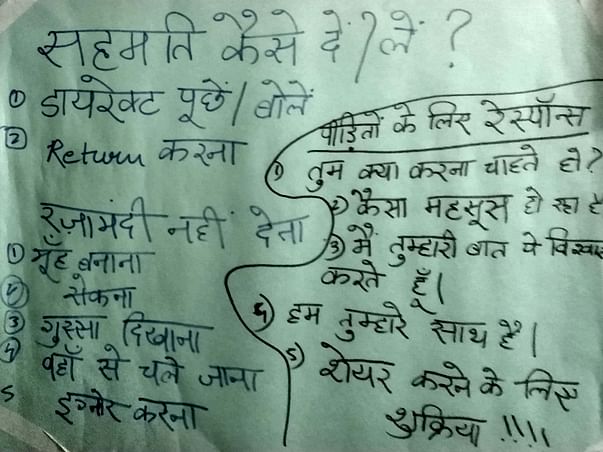 सहमति कैसे दें/लें ?
① डायरेक्ट पूछें/बोलें
② Return करना
रज़ामंदी नहीं देना
① मूँह बनाना
② रोकना
③ गुस्सा दिखाना
④ वहाँ से चले जाना
5 इग्नोर करना
पीड़ितों के लिए रेस्पॉन्स
① तुम क्या करना चाहते हो?
② कैसा महसूस हो रहा है
③ मैं तुम्हारी बात पे विश्वास
करते हूँ।
④ हम तुम्हारे साथ हैं।
⑤ शेयर करने के लिए
शुक्रिया !!!!